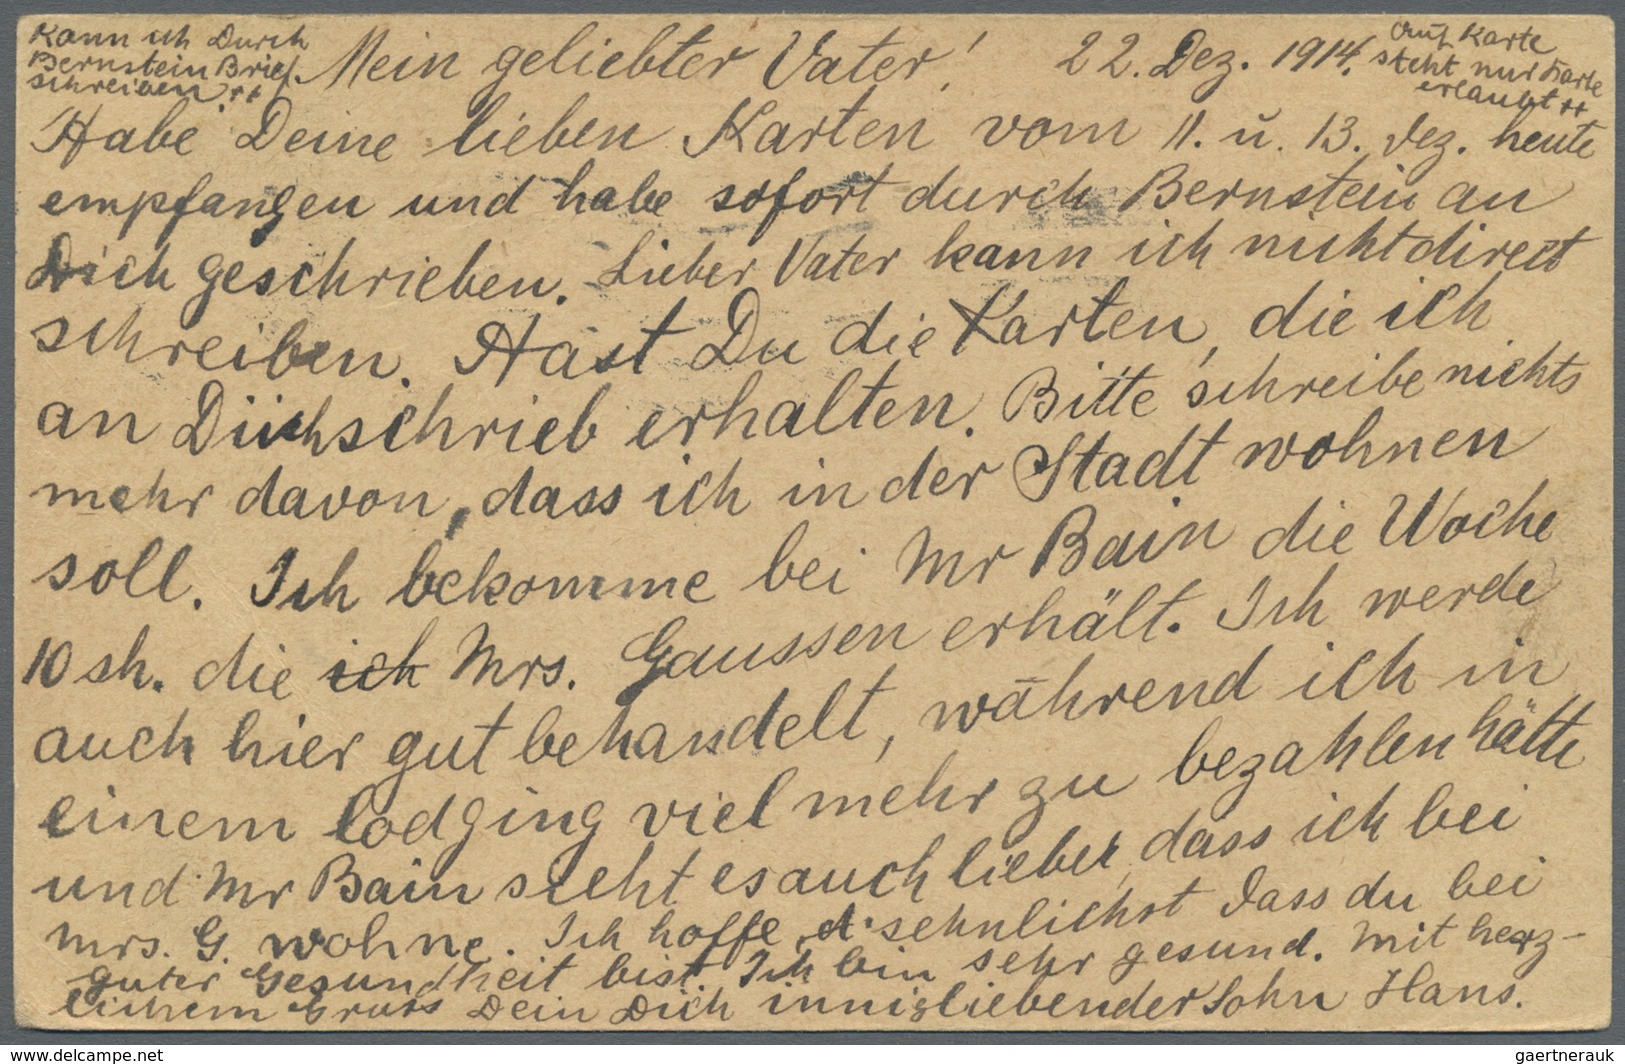 Kann ich Durch
Bernstein Brief
schreiben. ++
Mein geliebter Vater! 22. Dez. 1914.
Auf Karte
steht nur Karte
erlaubt ++
Habe Deine lieben Karten vom 11. u. 13. Dez. heute
empfangen und habe sofort durch Bernstein an
Dich geschrieben. Lieber Vater kann ich nicht direct
schreiben. Hast Du die Karten, die ich
an Dich schrieb erhalten. Bitte schreibe nichts
mehr davon, dass ich in der Stadt wohnen
soll. Ich bekomme bei Mr Bain die Woche
10 sh. die ich Mrs. Gaussen erhält. Ich werde
auch hier gut behandelt, während ich in
einem lodging viel mehr zu bezahlen hätte
und Mr Bain sieht es auch lieber, dass ich bei
Mrs. G. wohne. Ich hoffe sehnlichst dass du bei
guter Gesundheit bist. Ich bin sehr gesund. Mit herz-
lichem Gruss Dein Dich innigliebender Sohn Hans.
www.delcampe.net
gaertnerauk